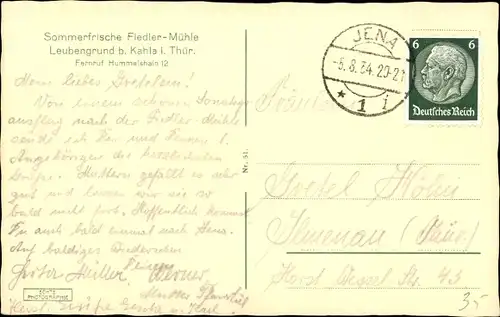 Sommerfrische Fiedler-Mühle
Leubengrund b. Kahla i. Thür.
Fernruf Hummelshain 12
Mein liebes Gretelein!
Von einem schönen Sonntags
ausflug nach der Fiedler-Mühle
sende ich Dir und Deinen l.
Angehörigen die herzlichsten
Grüße. Muttern gefällt es sehr
gut und lassen wir sie so
bald nicht fort. Hoffentlich kommst
Du auch bald einmal nach Jena.
Auf baldiges Wiedersehen
Deine
Müller. Werner
Mutter
Herzl. Grüße
ECHTE
PHOTOGRAPHIE
Nr. 51.
JENA
-5.8.34.20-21
* 1 i
6 6
Deutsches Reich
Fräulein
Gretel
Ilmenau (Thür.)
Horst Wessel Str. 43
35